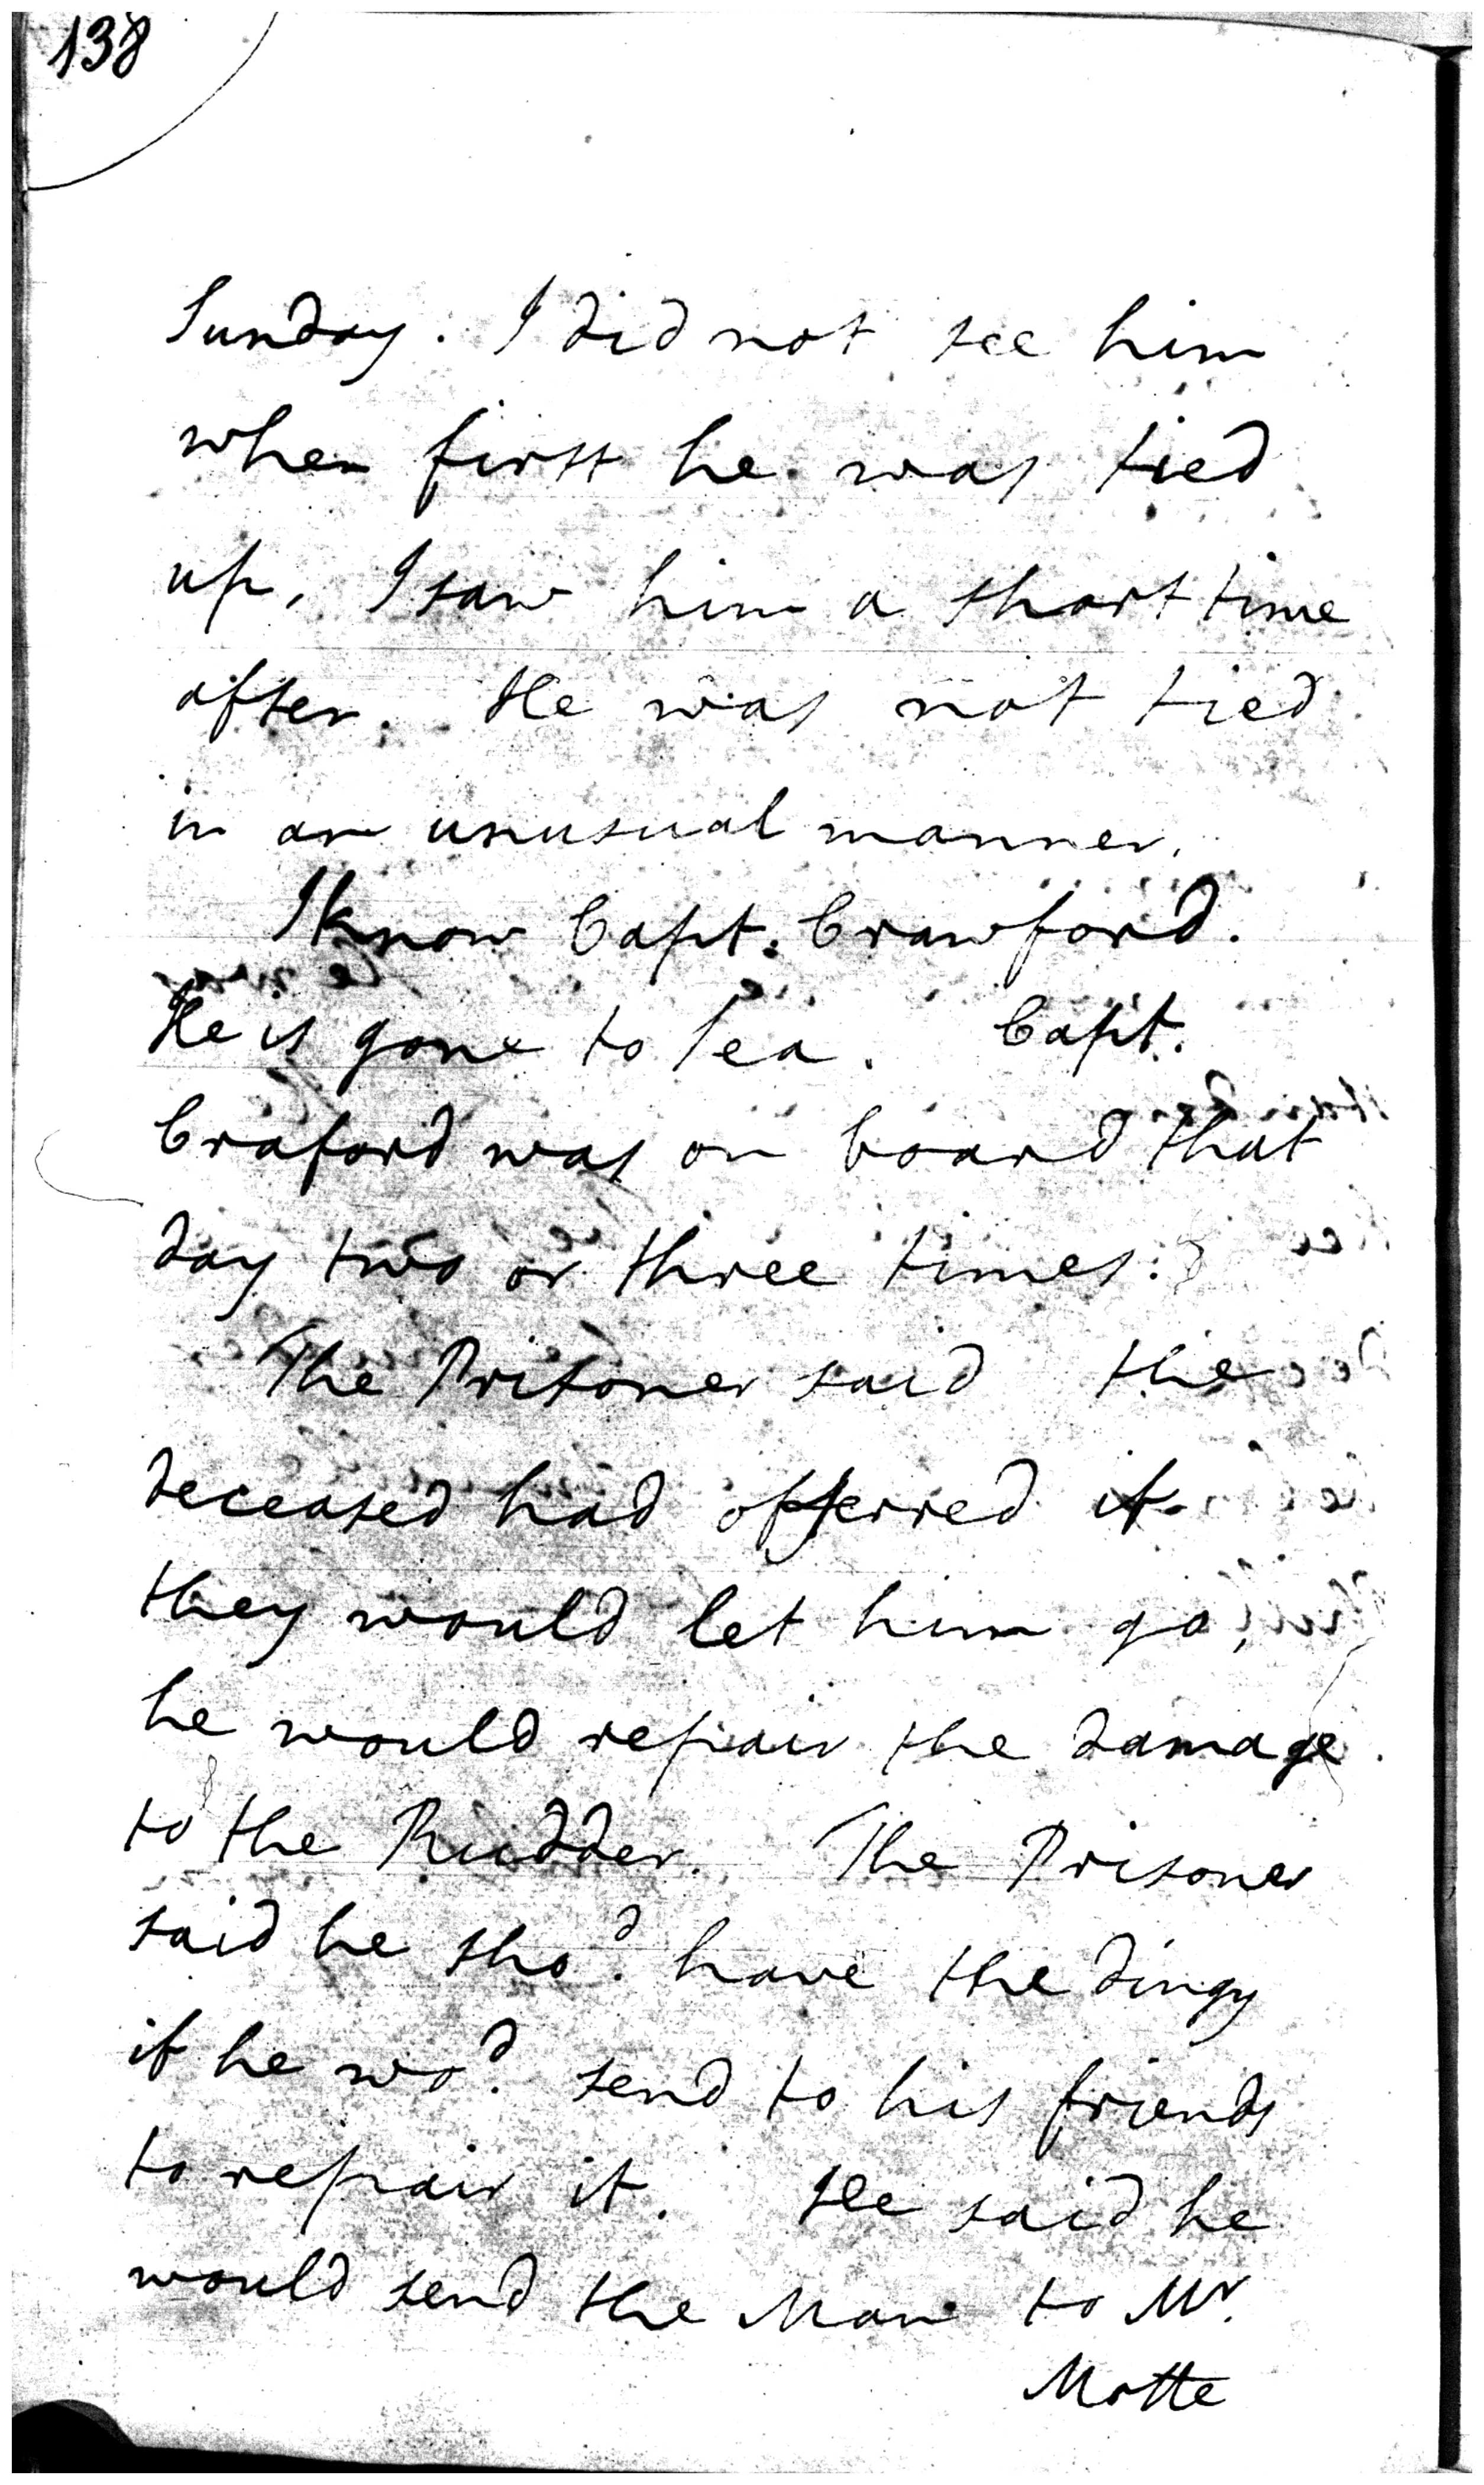 138
Sunday. I did not see him
when first he was tied
up, I saw him a short time
after. He was not tied
in an unusual manner.
I know Capt. Crawford.
He is gone to Sea. Capt.
Craford was on board that
day two or three times.
The Prisoner said the
deceased had offerred if
they would let him go,
he would repair the damage
to the Rudder. The Prisoner
said he shod. have the dingy
if he wod. send to his friends
to repair it. He said he
would send the Man to Mr.
Motte